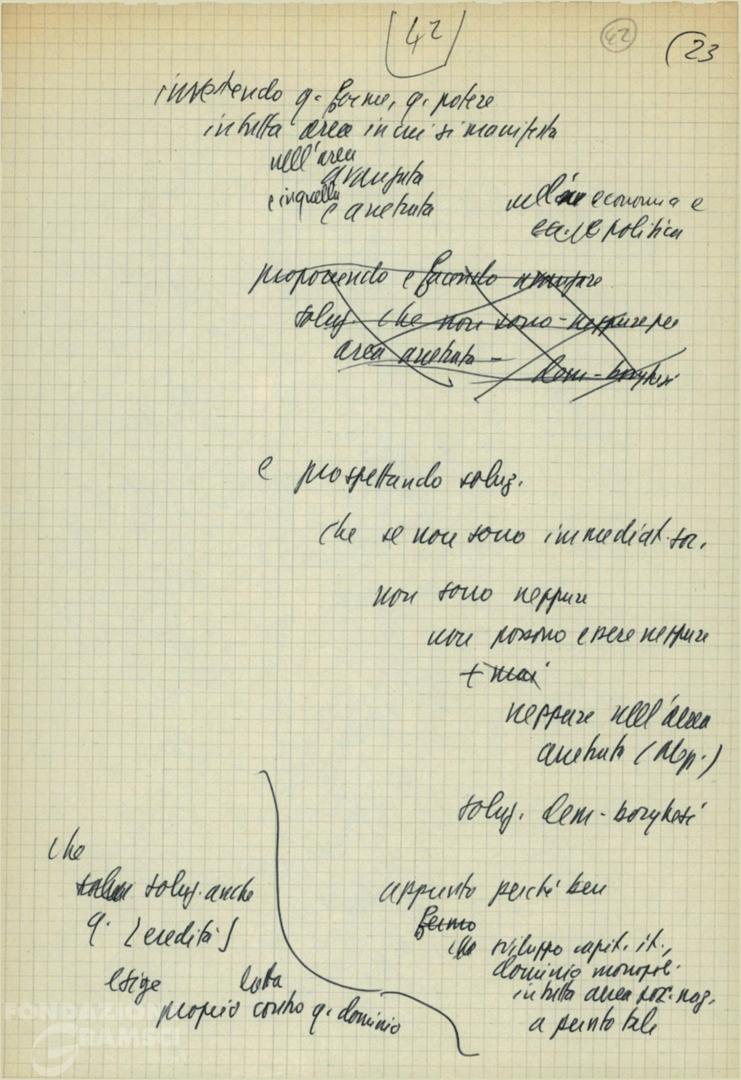 42
42
23
investendo q. forme, q. potere
in tutta area in cui si manifesta
nell'area
avanzata
e in quella
e arretrata
economia e
politica
proponendo e facendo avanzare
soluz. che non sono neppure per
area arretrata -
dem-borghesi
e prospettando soluz.
che se non sono immediat. soc.
non sono neppure
non possono essere neppure
+ mai
neppure nell'area
arretrata
soluz. dem-borghesi
che
soluz. anche
q. [eredità]
esige lotta
proprio contro q. dominio
appunto perché ben
fermo
che sviluppo capit. it.,
dominio monopol.
in tutta area soc. naz.
a punto tale
FONDAZIONE
GRAMSCI